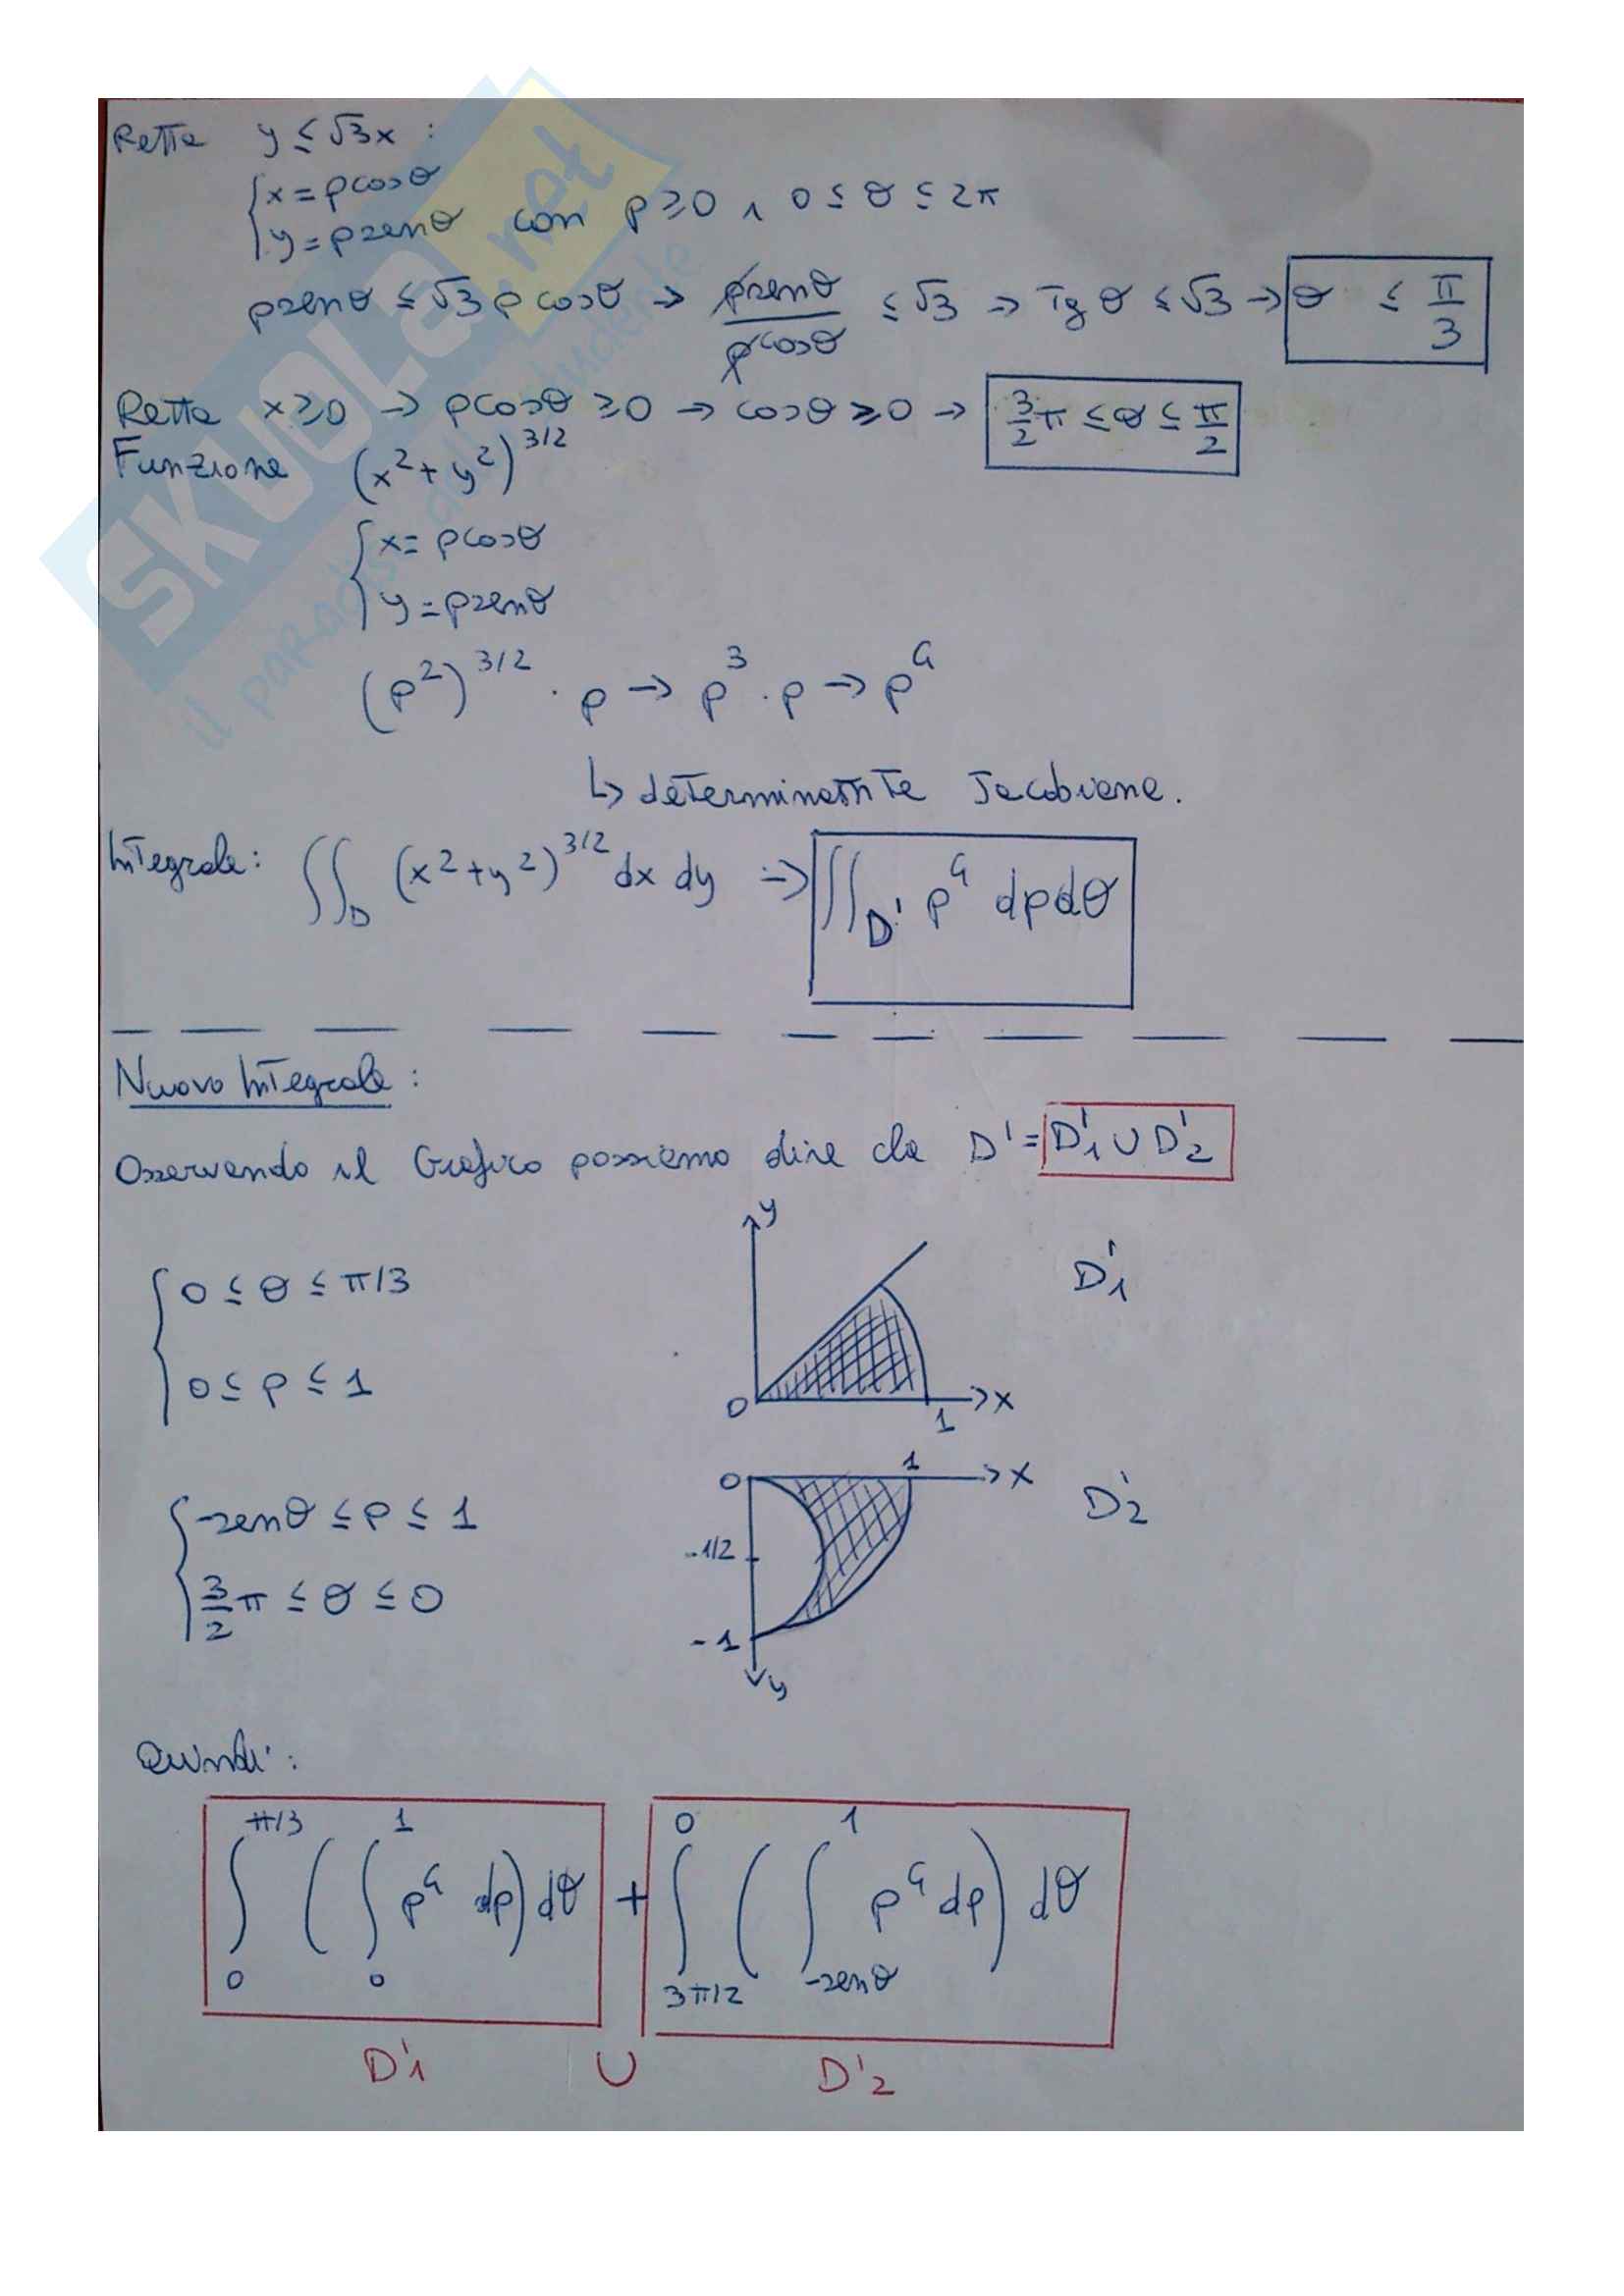 Retta y ≤ √3x :
{x = ρcosθ
{y = ρsenθ con ρ ≥ 0 , 0 ≤ θ ≤ 2π
ρsenθ ≤ √3 ρ cosθ → ρsenθ/ρcosθ ≤ √3 → Tg θ ≤ √3 → θ ≤ π/3
Retta x ≥ 0 → ρcosθ ≥ 0 → cosθ ≥ 0 → 3/2 π ≤ θ ≤ π/2
Funzione (x² + y²)^3/2
{x = ρcosθ
{y = ρsenθ
(ρ²)^3/2 · ρ → ρ³ · ρ → ρ⁴
↳ determinante Jacobiana.
Integrale: ∬_D (x² + y²)^3/2 dx dy ⇒ ∬_D' ρ⁴ dρdθ
Nuovo Integrale :
Osservando il Grafico possiamo dire che D' = D'1 ∪ D'2
y
D'1
{0 ≤ θ ≤ π/3
{0 ≤ ρ ≤ 1
0 1 x
0 1 x
D'2
{-senθ ≤ ρ ≤ 1
-1/2
{3/2 π ≤ θ ≤ 0
-1
y
Quindi :
∫_0^π/3 (∫_0^1 ρ⁴ dρ) dθ + ∫_3π/2^0 (∫_-senθ^1 ρ⁴ dρ) dθ
D'1 ∪ D'2
SKUOLA.net
il paradiso dello studente